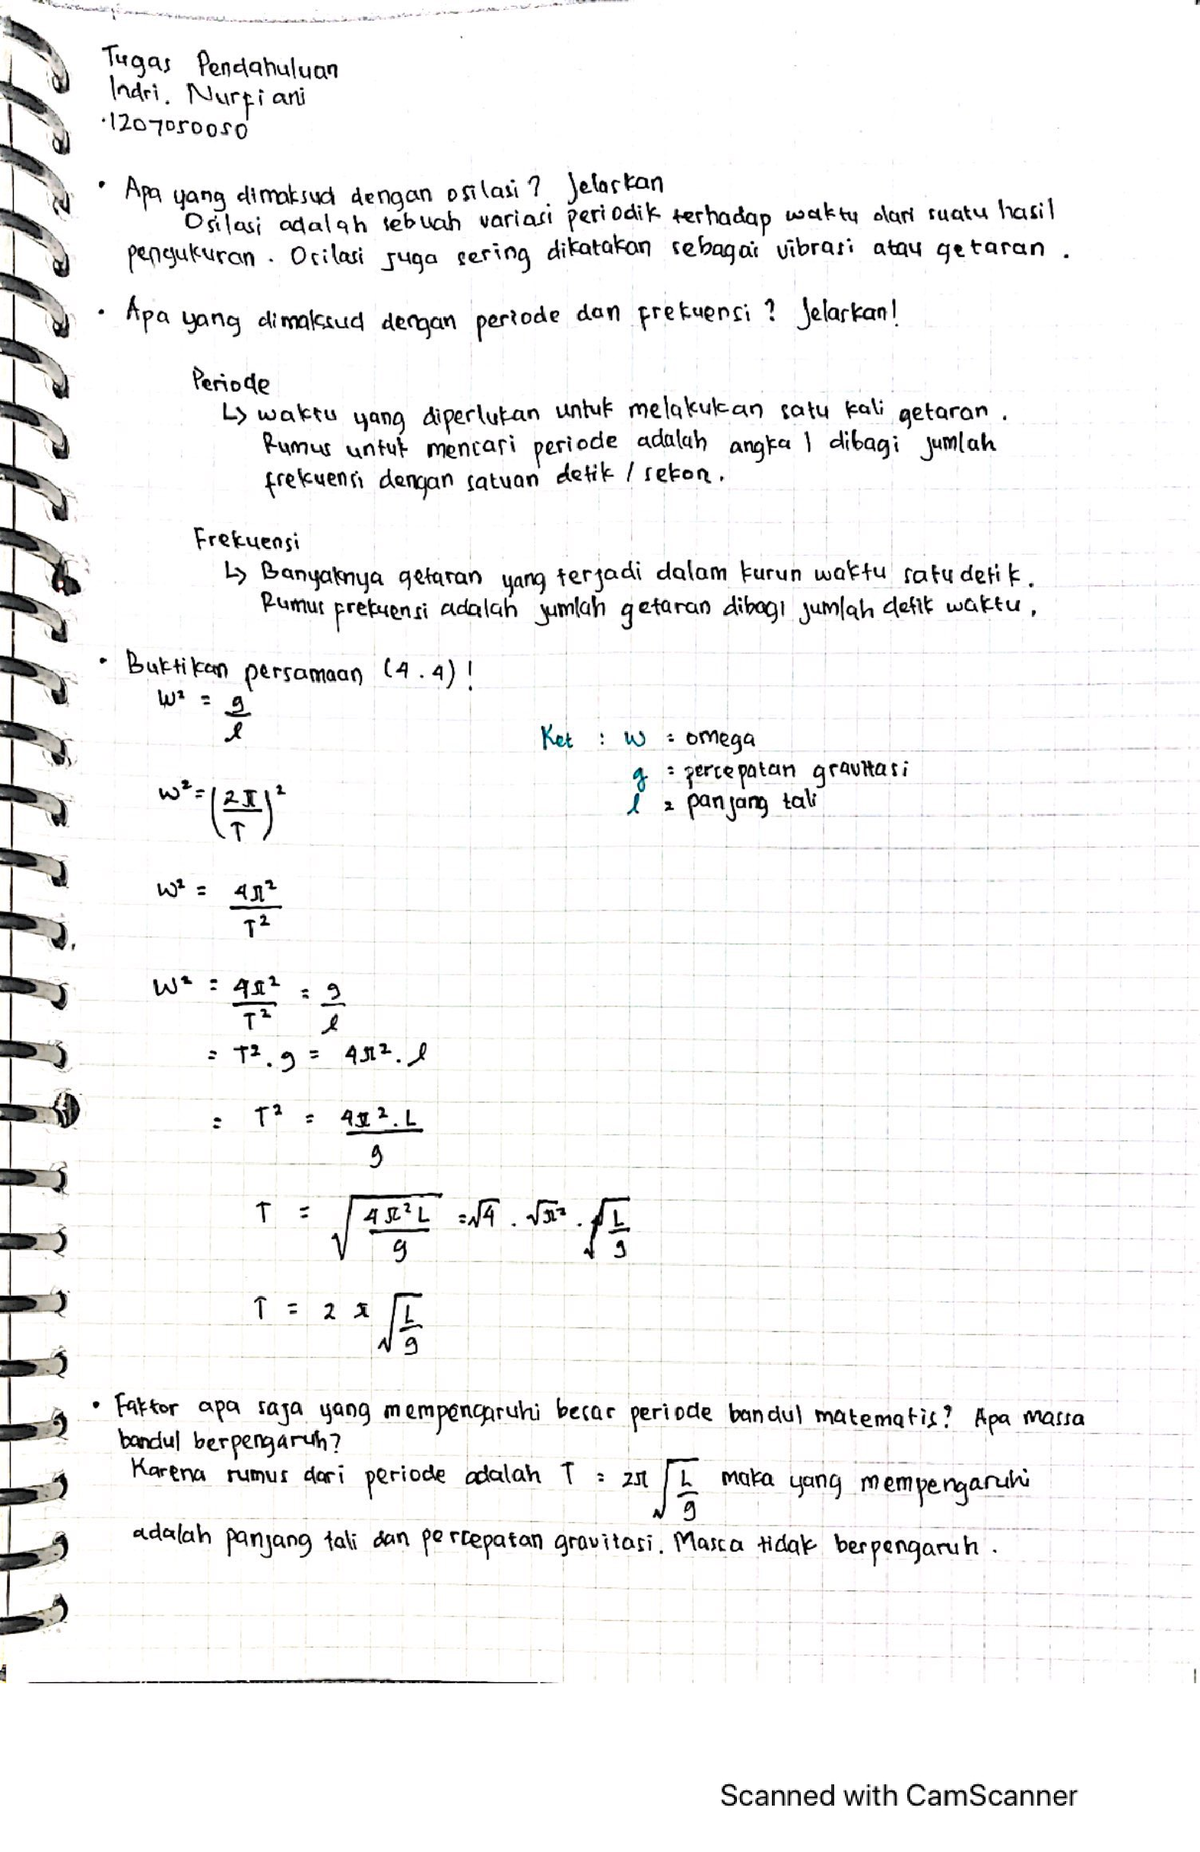 Tugas Pendahuluan
Indri. Nurfiani
1207050050
• Apa yang dimaksud dengan osilasi? Jelaskan
Osilasi adalah sebuah variasi periodik terhadap waktu dari suatu hasil
pengukuran. Osilasi juga sering dikatakan sebagai vibrasi atau getaran.
• Apa yang dimaksud dengan periode dan frekuensi? Jelaskan!
Periode
↳ waktu yang diperlukan untuk melakukan satu kali getaran.
Rumus untuk mencari periode adalah angka 1 dibagi jumlah
frekuensi dengan satuan detik / sekon.
Frekuensi
↳ Banyaknya getaran yang terjadi dalam kurun waktu satu detik.
Rumus frekuensi adalah jumlah getaran dibagi jumlah detik waktu.
• Buktikan persamaan (4.4)!
W² = g/l
Ket : w = omega
g = percepatan gravitasi
l = panjang tali
W² = (2π/T)²
W² = 4π²/T²
W² = 4π²/T² = g/l
= T². g = 4π². l
= T² = 4π². L/g
T = √(4π²L/g) = √4 . √π² . √(L/g)
T = 2 π √(L/g)
• Faktor apa saja yang mempengaruhi besar periode bandul matematis? Apa massa
bandul berpengaruh?
Karena rumus dari periode adalah T = 2π √(L/g) maka yang mempengaruhi
adalah panjang tali dan percepatan gravitasi. Massa tidak berpengaruh.
Scanned with CamScanner